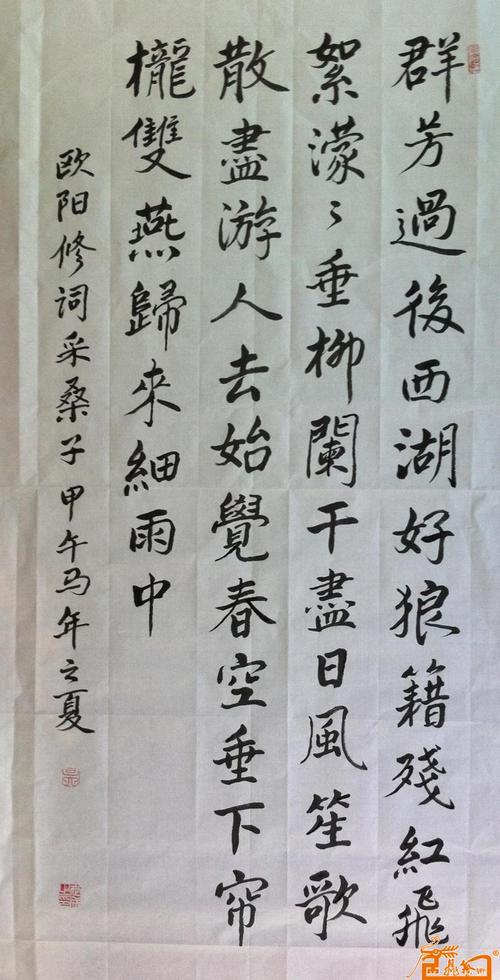 群芳過後西湖好狼籍殘紅飛
絮濛〻垂柳闌干盡日風笙歌
散盡游人去始覺春空垂下帘
櫳雙燕歸來細雨中
欧阳修词采桑子甲午马年之夏